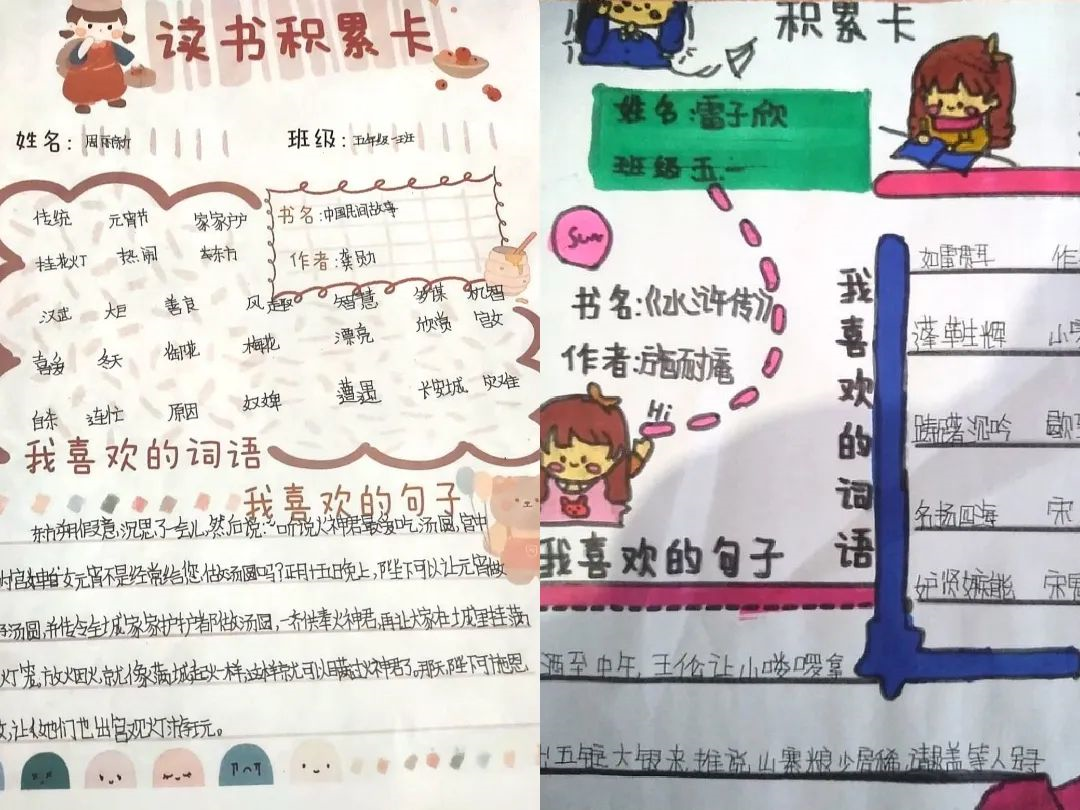 读书积累卡
姓名:
班级: 五年级一班
传统 元宵节 家家户户
书名:中国民间故事
桂花灯 热闹 东方
作者:龚勋
汉武 大臣 善良 风趣 智慧 多谋 机智
喜爱 冬天 御花 梅花 漂亮 欣赏 宫女
自杀 连忙 原因 奴婢 遭遇 长安城 灾难
我喜欢的词语
我喜欢的句子
东方朔假意沉思了一会儿,然后说:“听说火神君最爱吃汤圆,宫中
的宫女元宵不是经常给您做汤圆吗?正月十五晚上,陛下可以让元宵做
汤圆,并传令全城家家户户都做汤圆,一齐供奉火神君,再让大家在城里挂满
灯笼,放烟火,就像满城起火一样,这样就可以瞒过火神君了。那天,陛下可施恩
让她们也出宫观灯游玩。
积累卡
姓名:雷子欣
班级 五一
Sun
书名:《水浒传》
作者:施耐庵
Hi
我喜欢的词语
如雷贯耳 作
蓬荜生辉 小
踌躇沉吟
名扬四海 宋
妒贤嫉能 宋
我喜欢的句子
酒至中午,王伦让小喽啰拿
五锭大银来推说山寨粮少房稀,请晁盖等人另寻